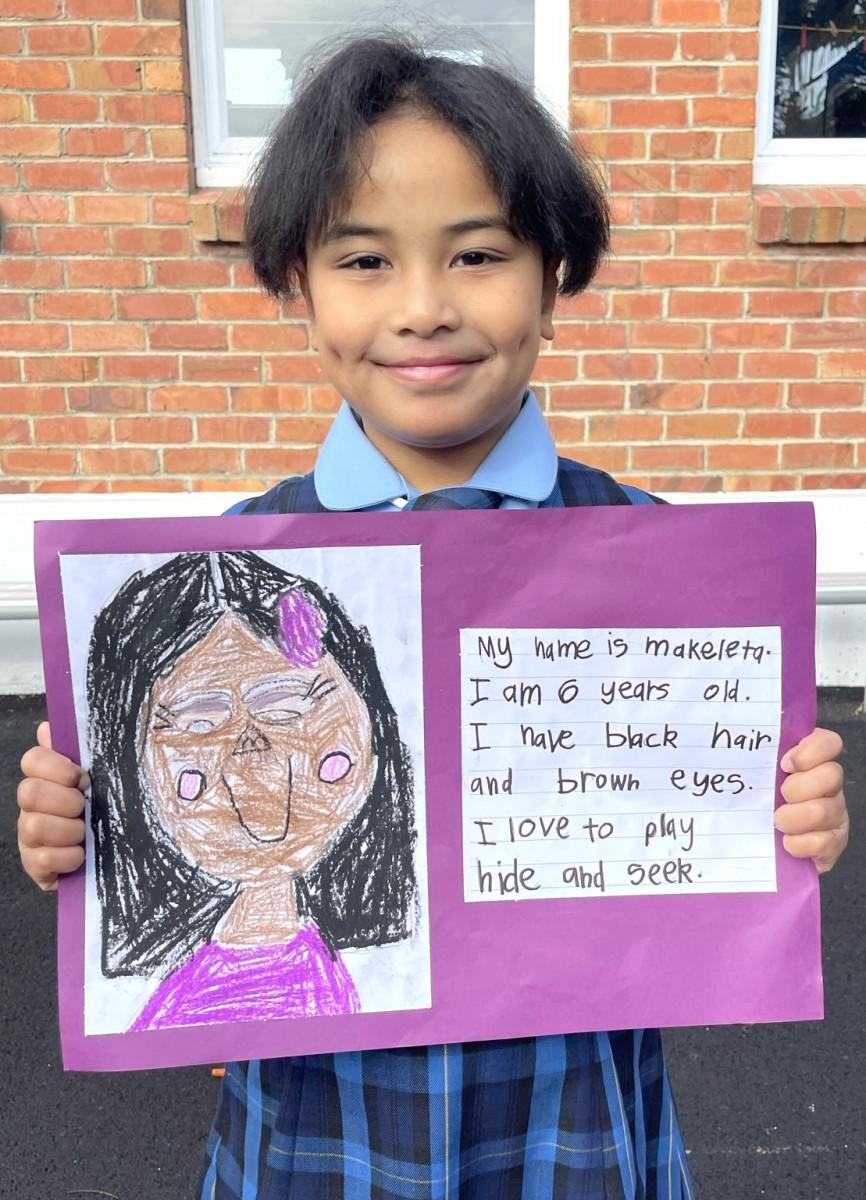 My name is makeleta.
I am 6 years old.
I have black hair
and brown eyes.
I love to play
hide and seek.